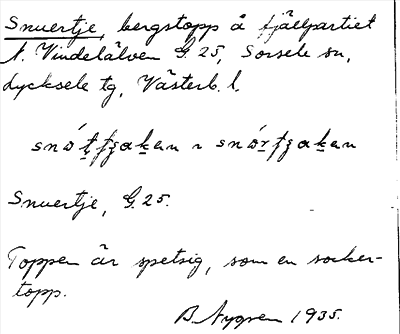 Snuertje, bergstopp å fjällpartiet
N. Vindelälven G. 25, Sorsele sn,
Lycksele tg, Västerb. l.
Snuertje, G. 25.
Toppen är spetsig, som en socker-
topp.
B. Nygren 1935.